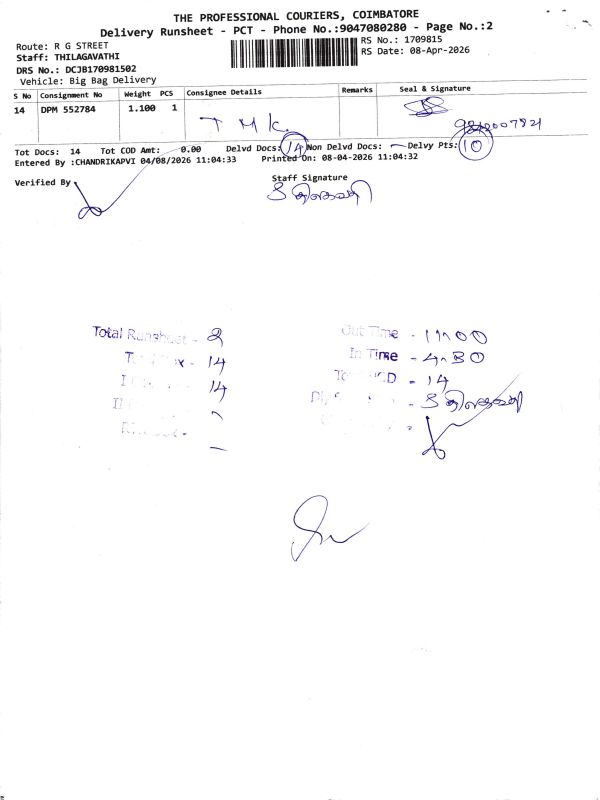 THE PROFESSIONAL COURIERS, COIMBATORE
Delivery Runsheet - PCT - Phone No.:9047080280 - Page No.:2
Route: R G STREET
RS No.: 1709815
Staff: THILAGAVATHI
RS Date: 08-Apr-2026
DRS No.: DCJB170981502
Vehicle: Big Bag Delivery
S No Consignment No Weight PCS Consignee Details Remarks Seal & Signature
14 DPM 552784 1.100 1
T M K.
Tot Docs: 14 Tot COD Amt: 0.00 Delvd Docs: 14 Non Delvd Docs: — Delvy Pts: 10
Entered By :CHANDRIKAPVI 04/08/2026 11:04:33 Printed On: 08-04-2026 11:04:32
Verified By
Staff Signature
Total Runsheet - 2
Out Time - 11:00
- 14
In Time - 4:30
14
- 14